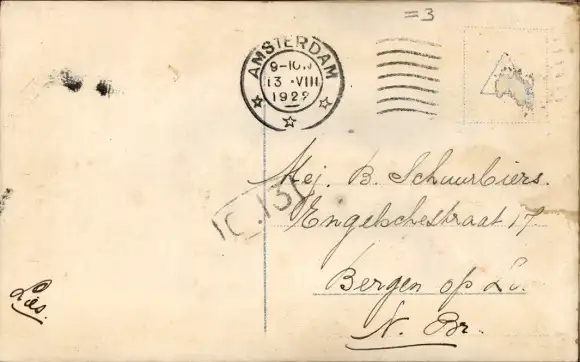 =3
AMSTERDAM
9-10V
13 .VIII
1922
C.13
Mej. B. Schuurbiers.
Engelschestraat 17.
Bergen op Z.
N. Br.
Lies.